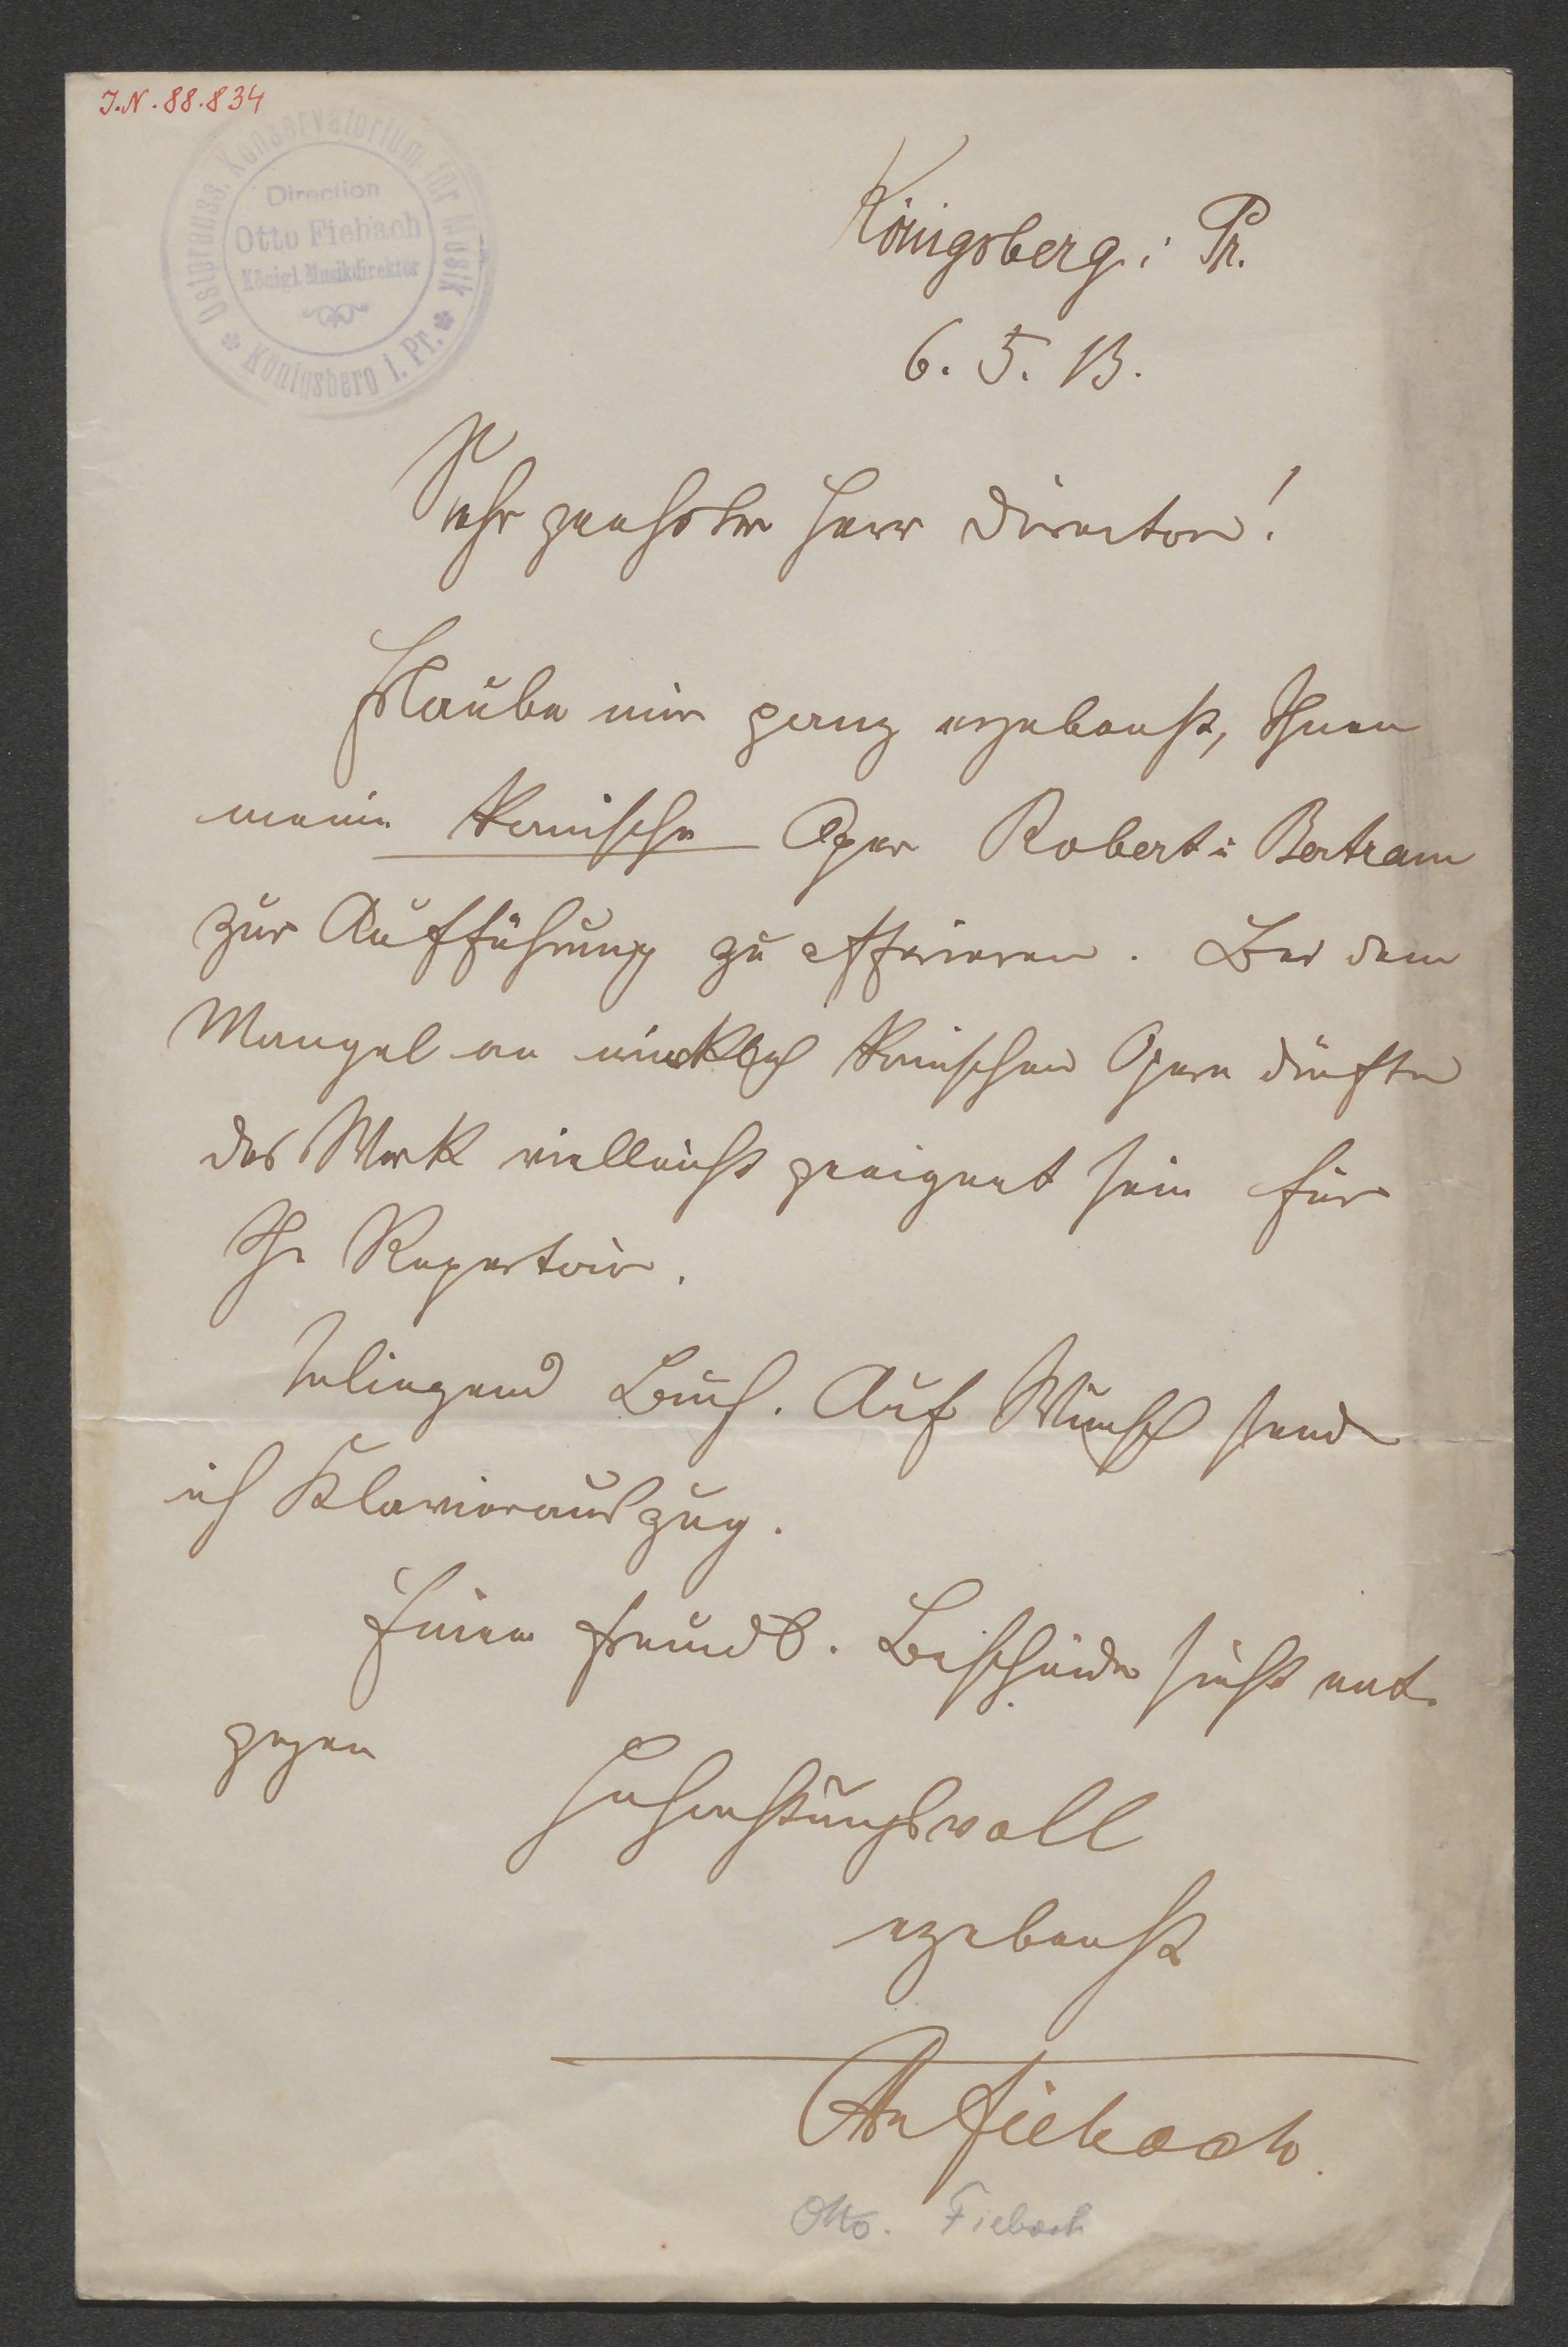 J.N. 88.834
Ostpreuss. Konservatorium für Musik
Direction
Otto Fiebach
Königl. Musikdirektor
Königsberg i. Pr.
Königsberg i Pr.
6. 5. 13.
Sehr geehrter Herr Director!
Erlaube mir ganz ergebenst, Ihnen
meine komische Oper Robert u Bertram
zur Aufführung zu offerieren. Bei dem
Mangel an wirklich komischen Opern dürfte
das Werk vielleicht geeignet sein für
Ihr Repertoir.
Inliegend Buch. Auf Wunsch sende
ich Klavierauszug.
Einem freundl. Bescheide sieht ent-
gegen
Hochachtungsvoll
ergebenst
Otto Fiebach.
Otto. Fiebach